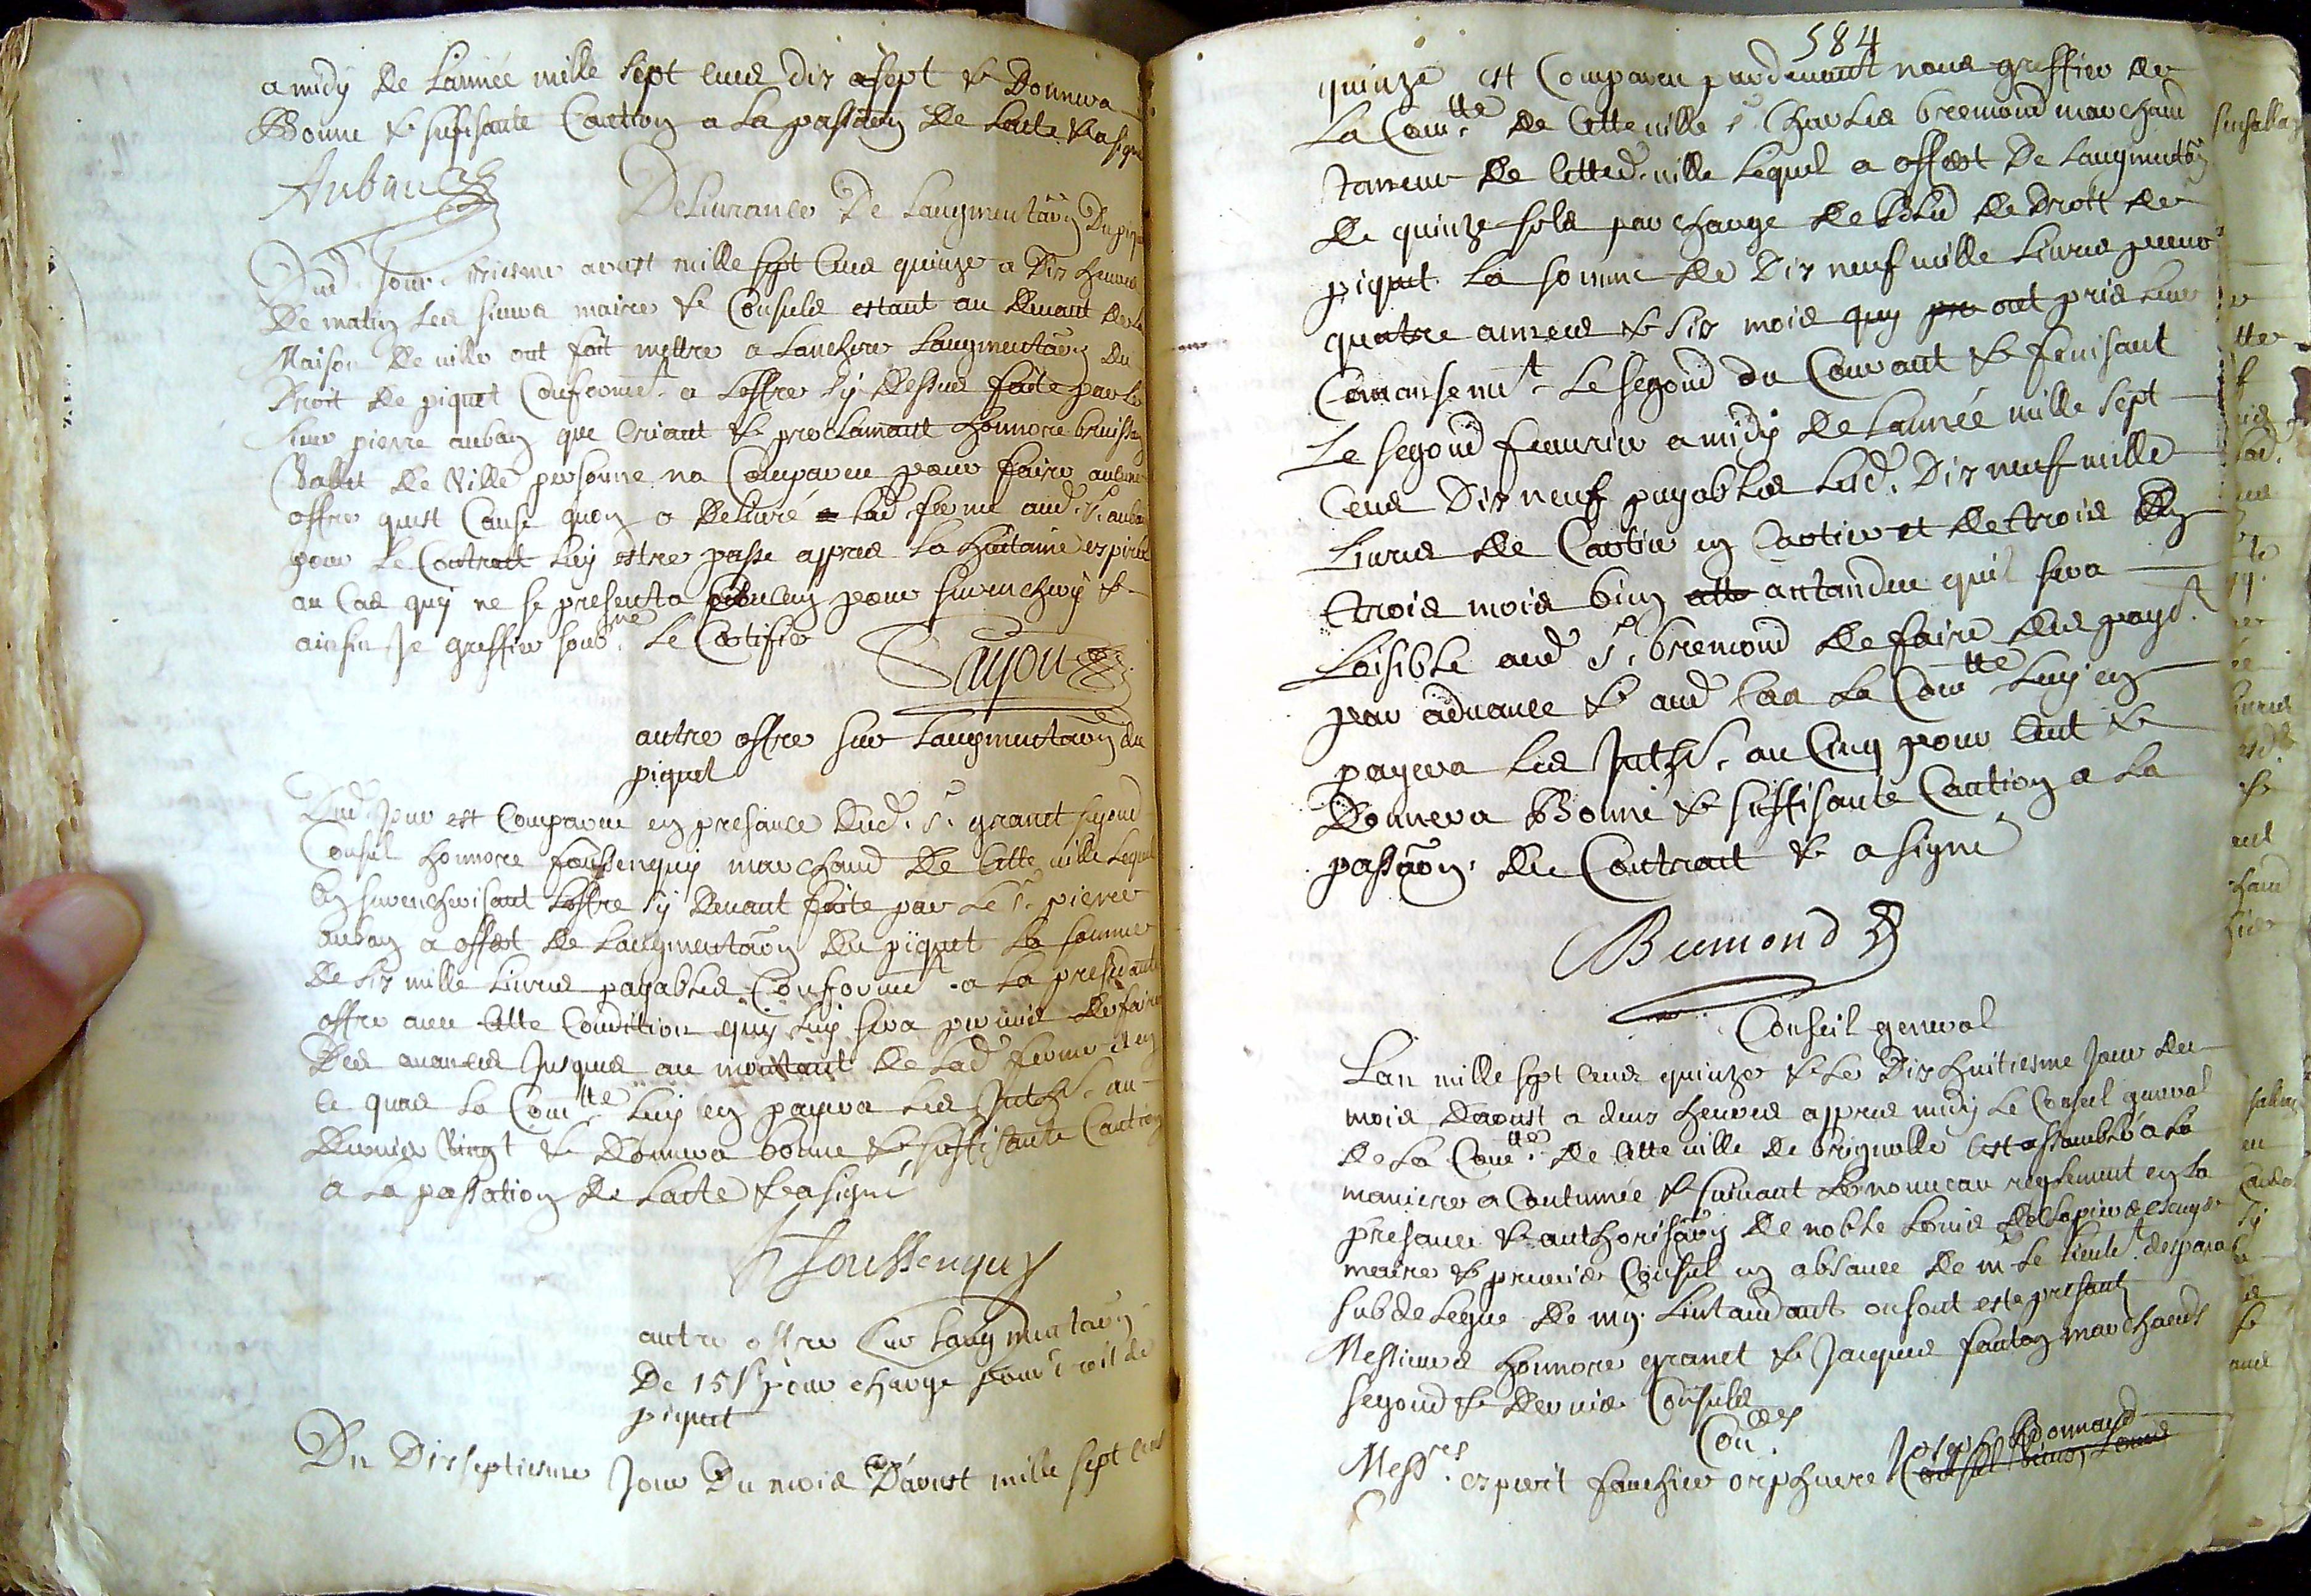 a midy de Lannée mille sept cens dix a sept & Donnera
Bonne & sufisante Caution a La passaôn de Lacte & a signé
Auban
Delivrance De Laugmentaôn Du piquet
Dud. Jour aoust mille sept Cens quinze a Dix heures
De matin Les sieurs maire & Consuls estant au devant de La
Maison de ville ont fait mettre a Lanchere Laugmentaôn Du
Droit de piquet Conformet. a Loffre sy dessus faite par Le
sieur pierre auban que Criant & proclamant honnore
Vallet de Ville personne na Compareu pour faire aucune
offre quest Cause quon a delivré Lad. ferme aud. Sr. auban
pour Le Contrait Luy estre passe appres La huitaine expirée
au Cas quy ne se presenta aucun pour surencherir &
ainsin Je greffier soubne. Le Certifie
autre offre sur Laugmentaôn du
piquet
Dud Jour est Compareu en presance dud. Sr. granet segond
Consul honnore foussenquy marchand de Cette ville Lequel
En surencherisant Loffre sy devant faite par Le Sr. pierre
auban a offert de Laugmentaôn du piquet La somme
de six mille Livres payables Conformet. a La presedante
offre avec Cette Condition quy Luy sera permis de faire
Des avances Jusques au montant de Lad ferme & en
ce quas La Comtte. Luy en payera Les Jnths. au
denier Vingt & donnera bonne & suffisante Caution
a La passation de Lacte & a signé
foussenquy
autre offre sur Laugmentaôn
De 15 s pour charge pour droit de
piquet
Du Disseptiesme Jour Du mois D'aoust mille sept cens
584
quinze est Compareu pardevant nous greffier de
La Comtte. de Cette ville sr. Charles bremond marchand
Taneur de Cetted. ville Lequel a offert De Laugmentaôn
de quinze sols par charge de de Droit de
piquet La somme de Dix neuf mille Livres pour
quatre annees & six mois quy ont pris Leur
Comansemt. Le segond du Courant & fenisant
Le segond feuvrier a midy de Lannée mille sept
Cens Dix neuf payables Lesd. Dix neuf mille
Livres de Cartier en Cartier et de trois En
trois mois bien antandeu quil sera
Loisible aud Sr. bremond de faire des payt.
par advance & aud Cas La Comtte Luy en
payera Les Jnths. au Cinq pour Cent &
donnera Bonne & suffisante Caution a La
passaôn. du Contrait & a signé
Bremond
Conseil general
Lan mille sept Cens quinze & Le Dix huitiesme Jour du
mois daoust a deux heures appres midy Le Conseil general
de La Comtte. de Cette ville de brignolle Cest assamblé a La
maniere a Coutumée & suivant Le nouveau reglement en La
presance & authorisaôn de noble Louis
maire & premier Consul en absance de mr Le Lieutt.
subdelegue de mgr. Lintandant ou sont este presants
Messieurs honnore granet & Jacques fanton marchands
segond & dernier Consuls
Conlles.
Messres. esperit fauchier orphevre Joseph Bonnaud